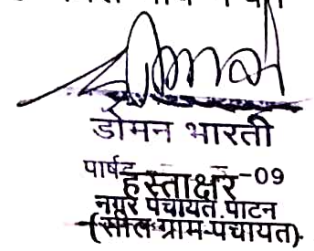 डोमन भारती
पार्षद -09
हस्ताक्षर
नगर पंचायत पाटन
(सील ग्राम-पंचायत)